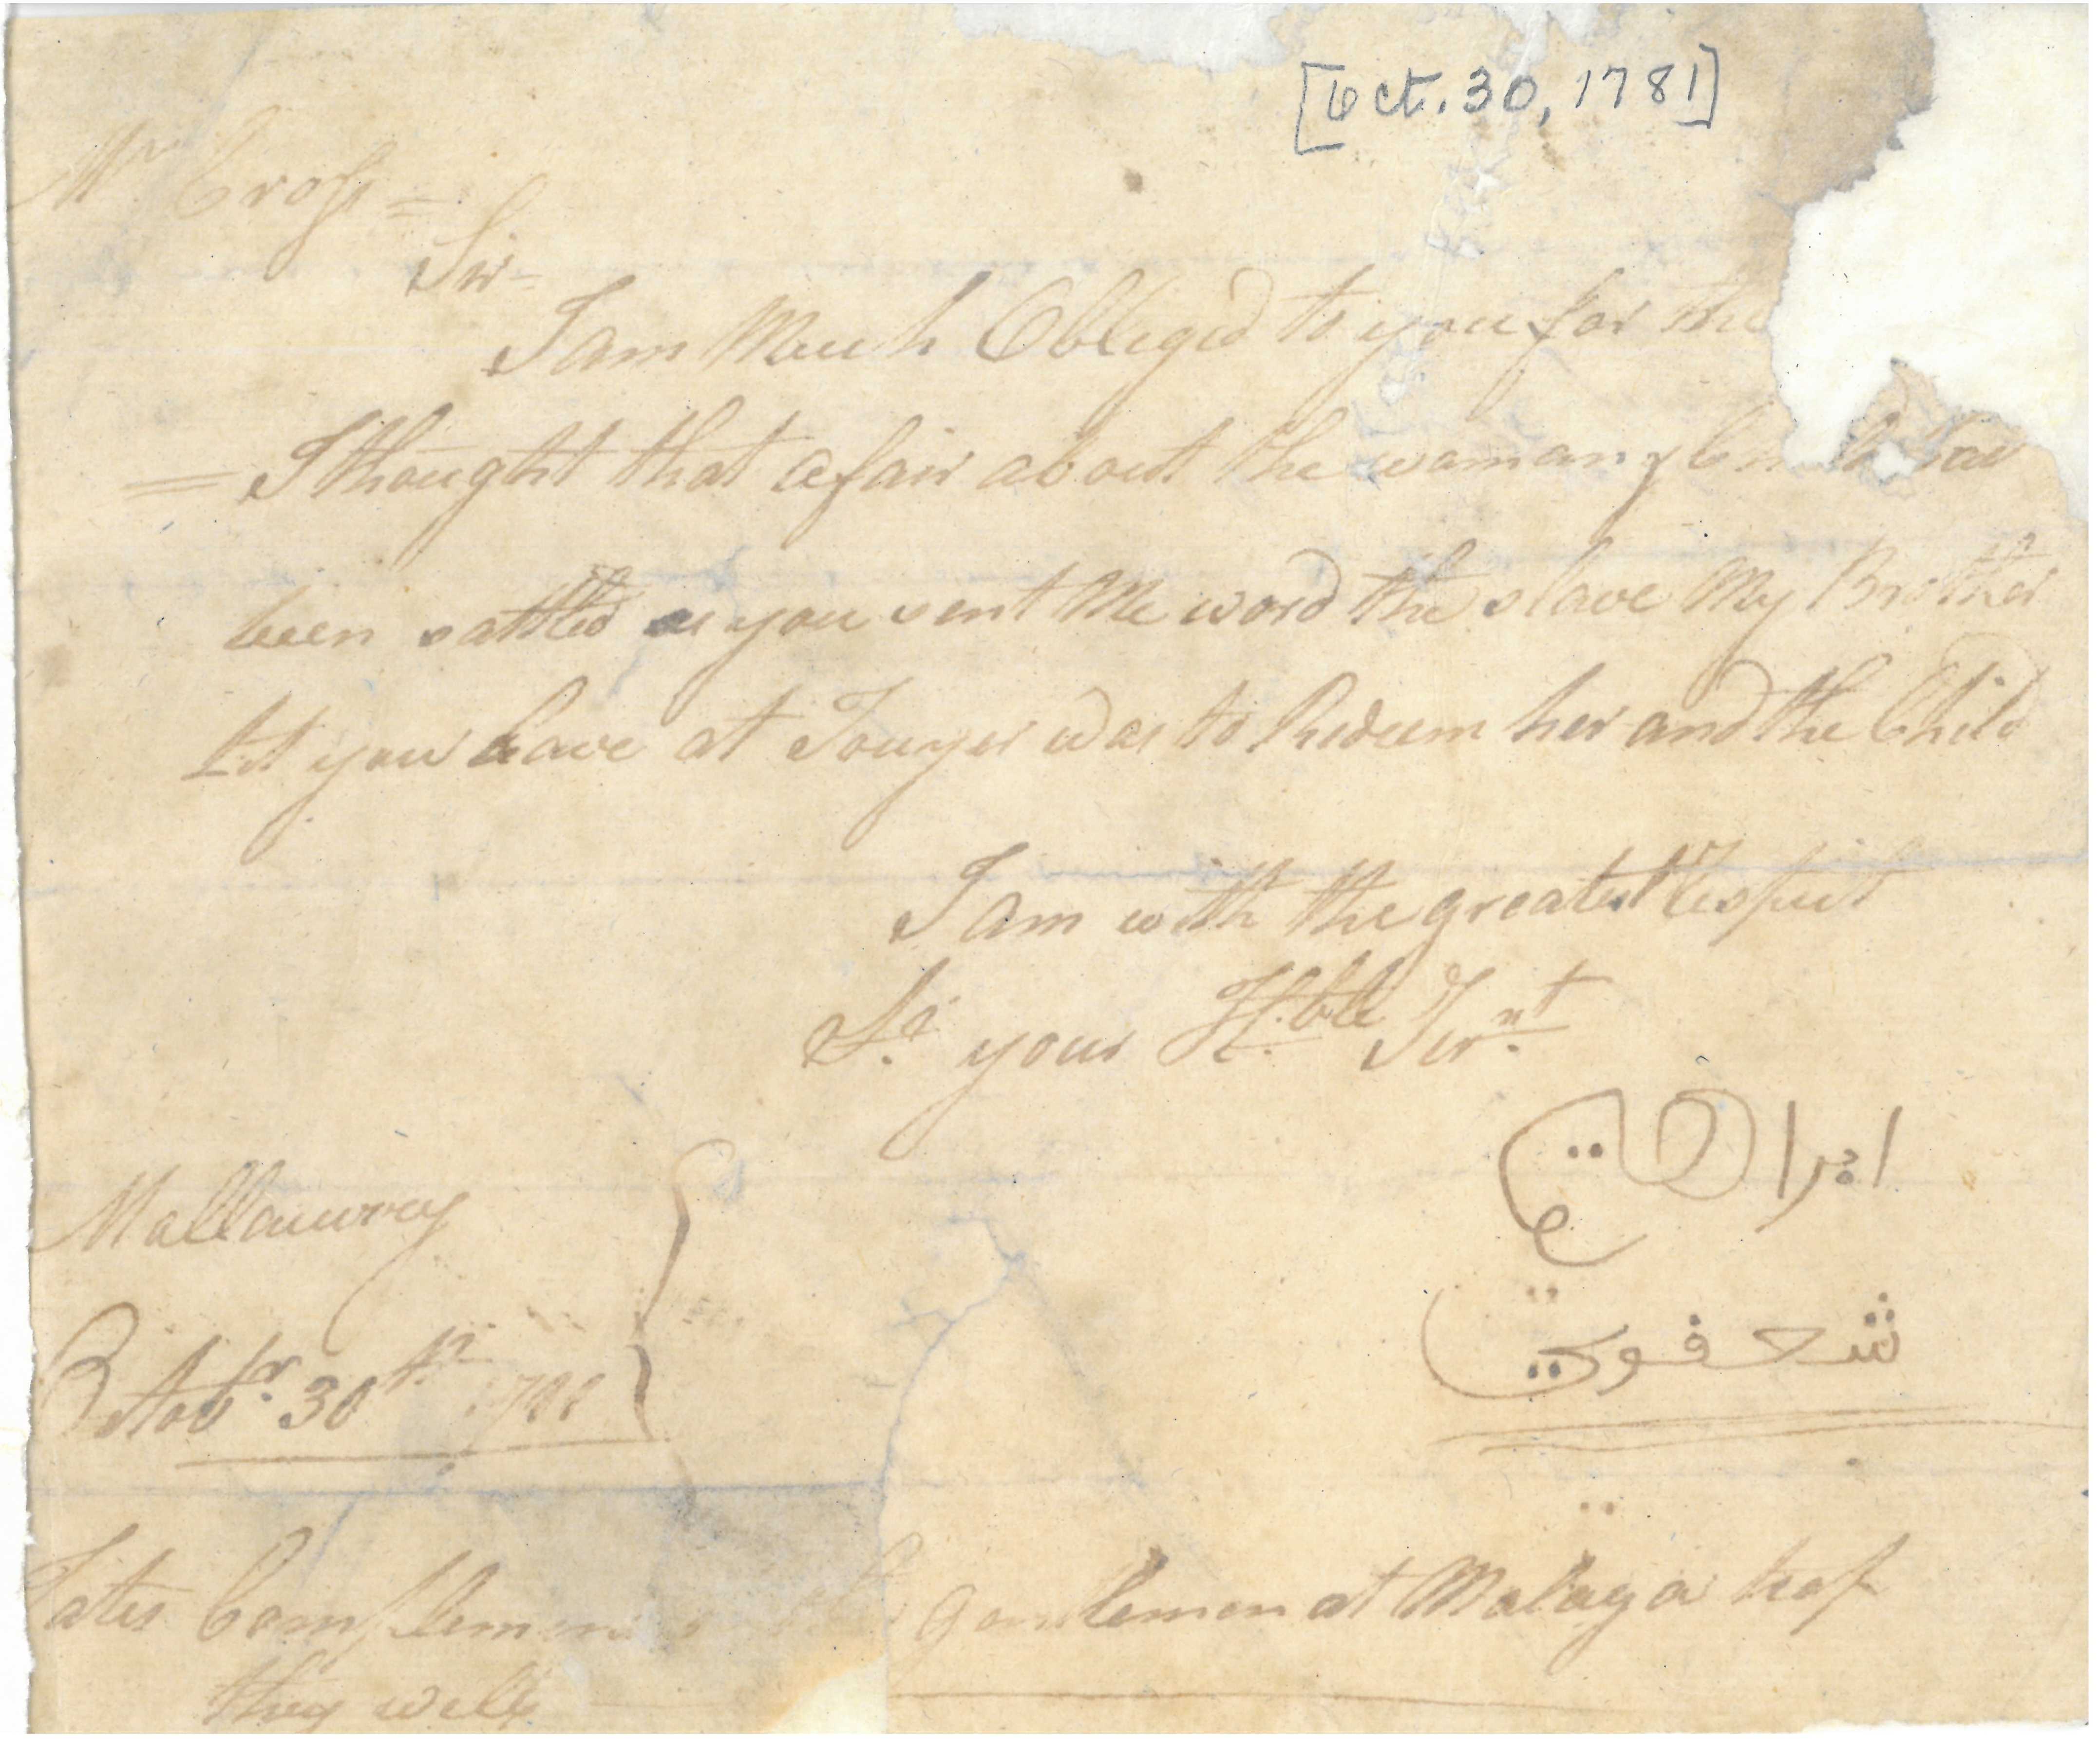 [Oct. 30, 1781]
Mr Cross =
Sir -
I am Much Obliged to you for the
= I thought that afair about the woman & Child had
been sattled as you sent Me word the slave My Brother
let you have at Tonyer was to Redeem her and the Child
I am with the greatest Respect
Sr. your H.ble Ser.nt
ابراهيم
شعفوي
Mallauwrey
Octobr. 30th 1781
Complements gentlemen at Malaga hop
they well